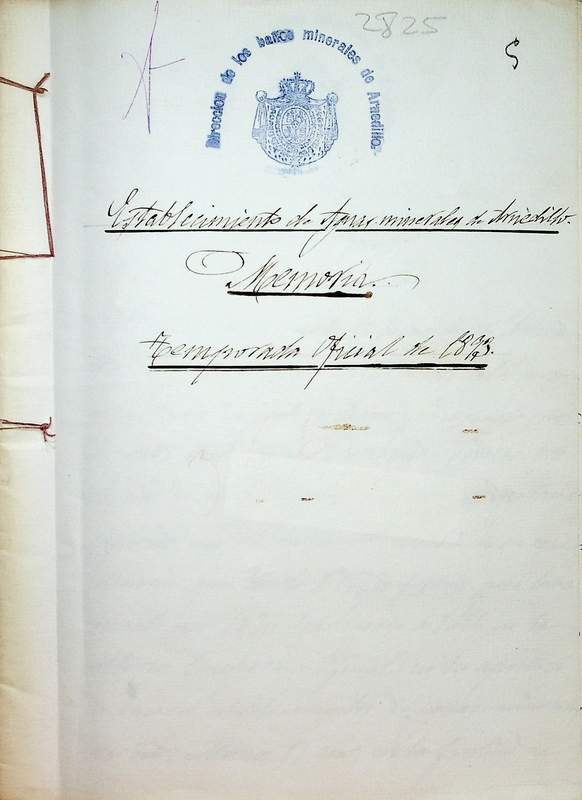 2825
5
Direccion de los baños minerales de Arnedillo.
Establecimiento de Aguas minerales de Arnedillo.
Memoria.
Temporada Oficial de 1893.